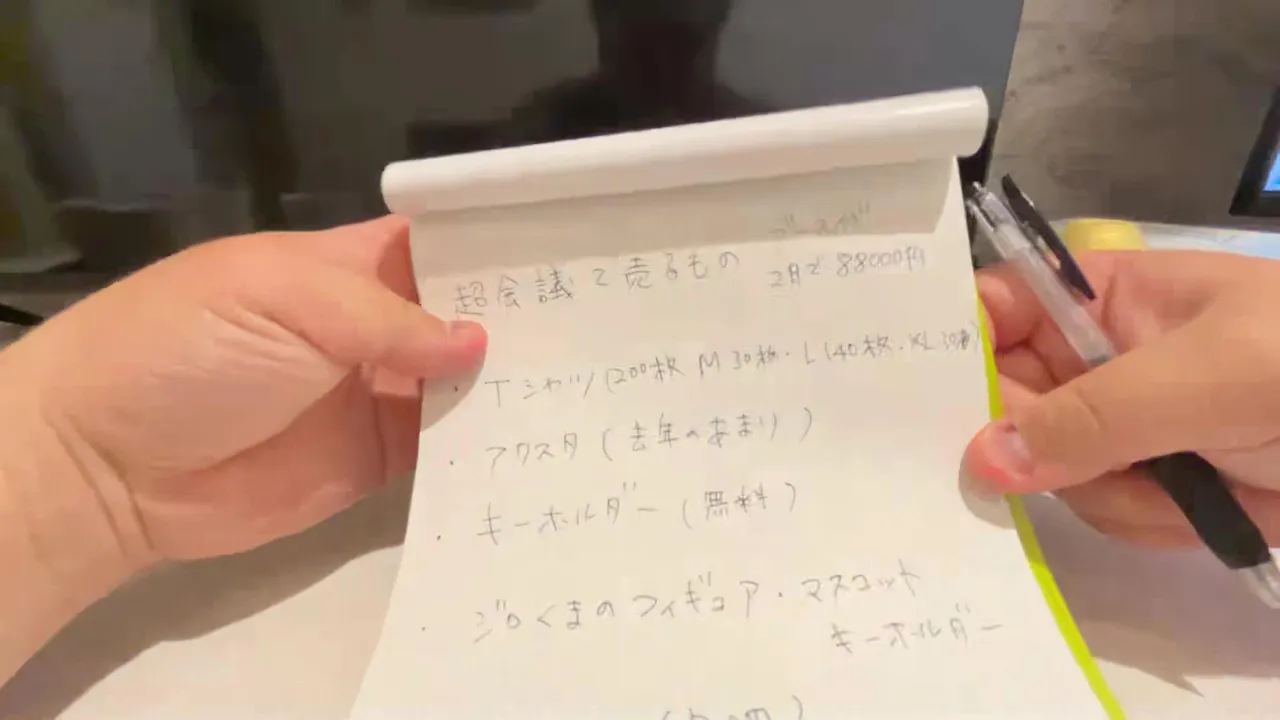 超会議で売るもの
ブース代
2日で88000円
・Tシャツ(200枚 M30枚・L140枚・XL30枚)
・アクスタ(去年のあまり)
・キーホルダー(無料)
・ジロくまのフィギュア・マスコット
キーホルダー